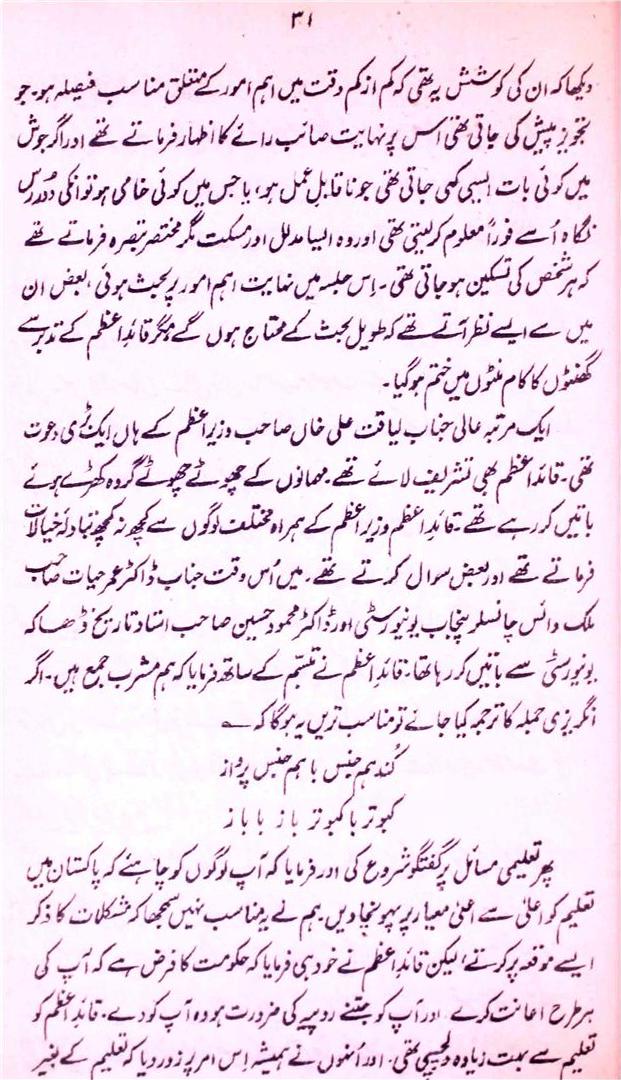 ۳۱
دیکھا کہ ان کی کوشش یہ تھی کہ کم از کم وقت میں اہم امور کے متعلق مناسب فیصلہ ہو۔ جو
تجویز پیش کی جاتی تھی اس پر نہایت صائب رائے کا اظہار فرماتے تھے اور اگر جوش
میں کوئی بات ایسی کہی جاتی تھی جو ناقابل عمل ہو، یا جس میں کوئی خامی ہو تو انکی دور رس
نگاہ اُسے فوراً معلوم کر لیتی تھی اور وہ ایسا مدلل اور مسکت مگر مختصر تبصرہ فرماتے تھے
کہ ہر شخص کی تسکین ہو جاتی تھی۔ اِس جلسہ میں نہایت اہم امور پر بحث ہوئی، بعض ان
میں سے ایسے نظر آتے تھے کہ طویل بحث کے محتاج ہوں گے، مگر قائدِ اعظم کے تدبر سے
گھنٹوں کا کام منٹوں میں ختم ہو گیا۔
ایک مرتبہ عالی جناب لیاقت علی خاں صاحب وزیرِ اعظم کے ہاں ایک بڑی دعوت
تھی۔ قائدِ اعظم بھی تشریف لائے تھے۔ مہمانوں کے چھوٹے چھوٹے گروہ کھڑے ہوئے
باتیں کر رہے تھے۔ قائدِ اعظم وزیرِ اعظم کے ہمراہ مختلف لوگوں سے کچھ نہ کچھ تبادلۂ خیالات
فرماتے تھے اور بعض سوال کرتے تھے۔ میں اُس وقت جناب ڈاکٹر عمر حیات صاحب
ملک وائس چانسلر پنجاب یونیورسٹی اور ڈاکٹر محمود حسین صاحب استاد تاریخ ڈھاکہ
یونیورسٹی سے باتیں کر رہا تھا۔ قائدِ اعظم نے تبسّم کے ساتھ فرمایا کہ ہم مشرب جمع ہیں۔ اگر
انگریزی جملہ کا ترجمہ کیا جائے تو مناسب ترین یہ ہوگا کہ ؎
کُند ہم جنس با ہم جنس پرواز
کبوتر با کبوتر باز با باز
پھر تعلیمی مسائل پر گفتگو شروع کی اور فرمایا کہ آپ لوگوں کو چاہئے کہ پاکستان میں
تعلیم کو اعلیٰ سے اعلیٰ معیار پر پہونچا دیں۔ ہم نے یہ مناسب نہیں سمجھا کہ مشکلات کا ذکر
ایسے موقعہ پر کرتے، لیکن قائدِ اعظم نے خود ہی فرمایا کہ حکومت کا فرض ہے کہ آپ کی
ہر طرح اعانت کرے اور آپ کو جتنے روپیہ کی ضرورت ہو وہ آپ کو دے۔ قائدِ اعظم کو
تعلیم سے بہت زیادہ دلچسپی تھی۔ اور اُنہوں نے ہمیشہ اِس امر پر زور دیا کہ تعلیم کے بغیر